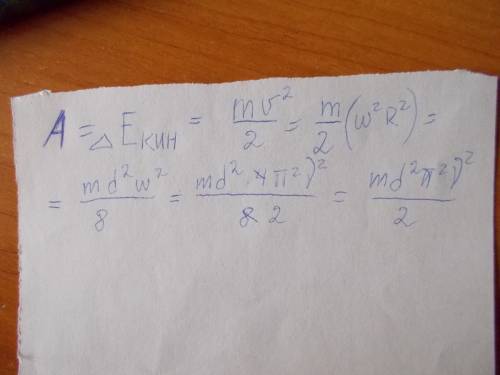 A = ΔEкин = mv²/2 = m/2 (w²R²) =
= md²w²/8 = md² 4π²ν²/8 2 = md²π²ν²/2